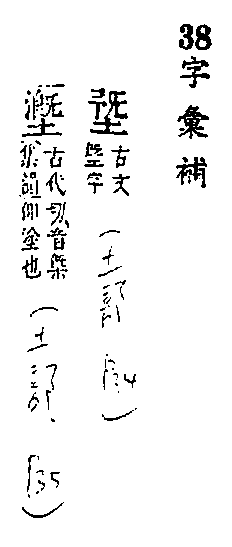 38字彙補
古文
字
(土部 134)
古代切音槩
仰塗也
(土部 135)